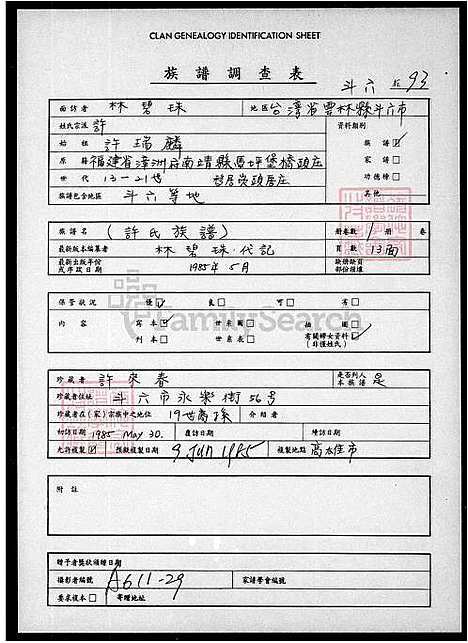 CLAN GENEALOGY IDENTIFICATION SHEET
族譜調查表
斗六 93
面訪者 林碧珠 地區 台灣省雲林縣斗六市
姓氏宗派 許 資料類別
始祖 許瑞麟 族譜
原籍 福建省漳洲府南靖縣馬坪堡 家譜
世代 13—21世 功德榜
族譜包含地區 斗六等地 其他
族譜名 (許氏族譜) 冊卷數 1 冊 卷
最新版本編纂者 林碧珠·代記 頁數 13面
最新出版年份或序跋日期 1985年5月 缺缺缺頁部份積導
保管狀況 優 良 可 劣
內容 寫本 世系圖 插圖
刊本 世系表 有關婦女資料(非僅姓氏)
珍藏者 許來春 是否列入本族譜 是
珍藏者住址 斗六市永樂街56号
珍藏者在(家)宗族中之地位 19世裔孫 介紹者
初訪日期 1985 May 30. 覆訪日期 續訪日期
允許複製 預敍複製日期 9 Jun 1985 複製地點 高雄市
附註
贈予者獎狀頒贈日期
攝影者編號 A611-29 家譜學會編號
要求複本 寄贈地址
FamilySearch